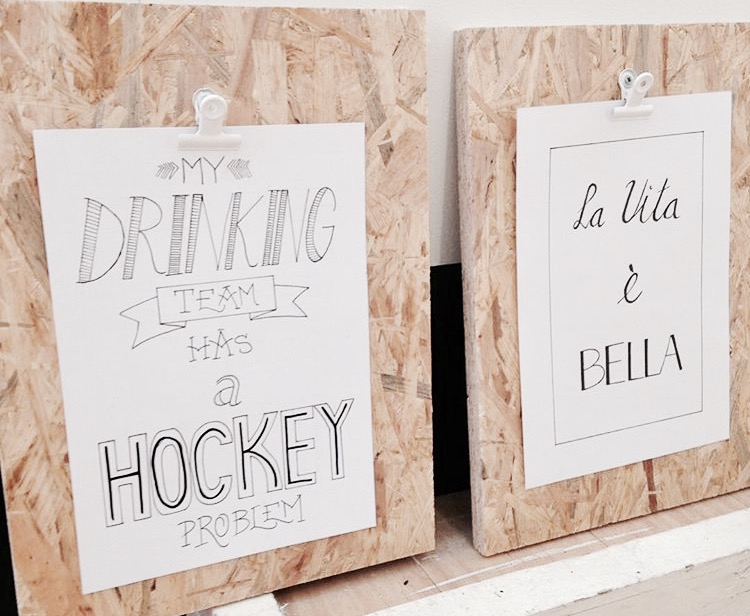 MY
DRINKING
TEAM
HAS
a
HOCKEY
PROBLEM
La Vita
è
BELLA